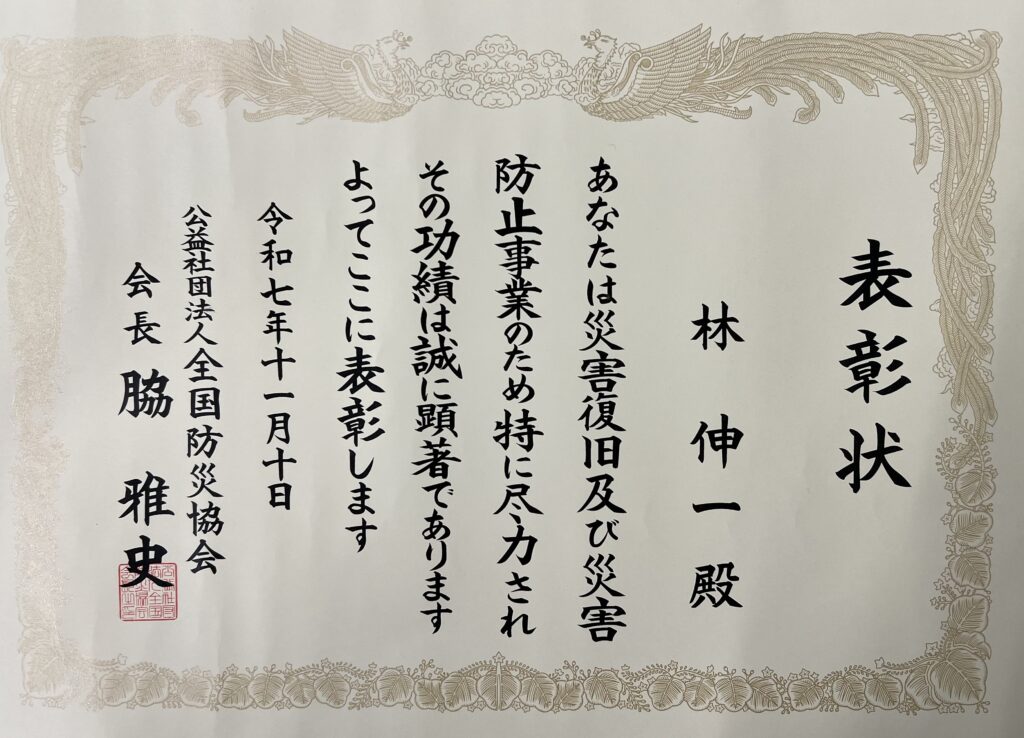 表彰状
林 伸一殿
あなたは災害復旧及び災害
防止事業のため特に尽力され
その功績は誠に顕著であります
よってここに表彰します
令和七年十一月十日
公益社団法人全国防災協会
会長 脇 雅史